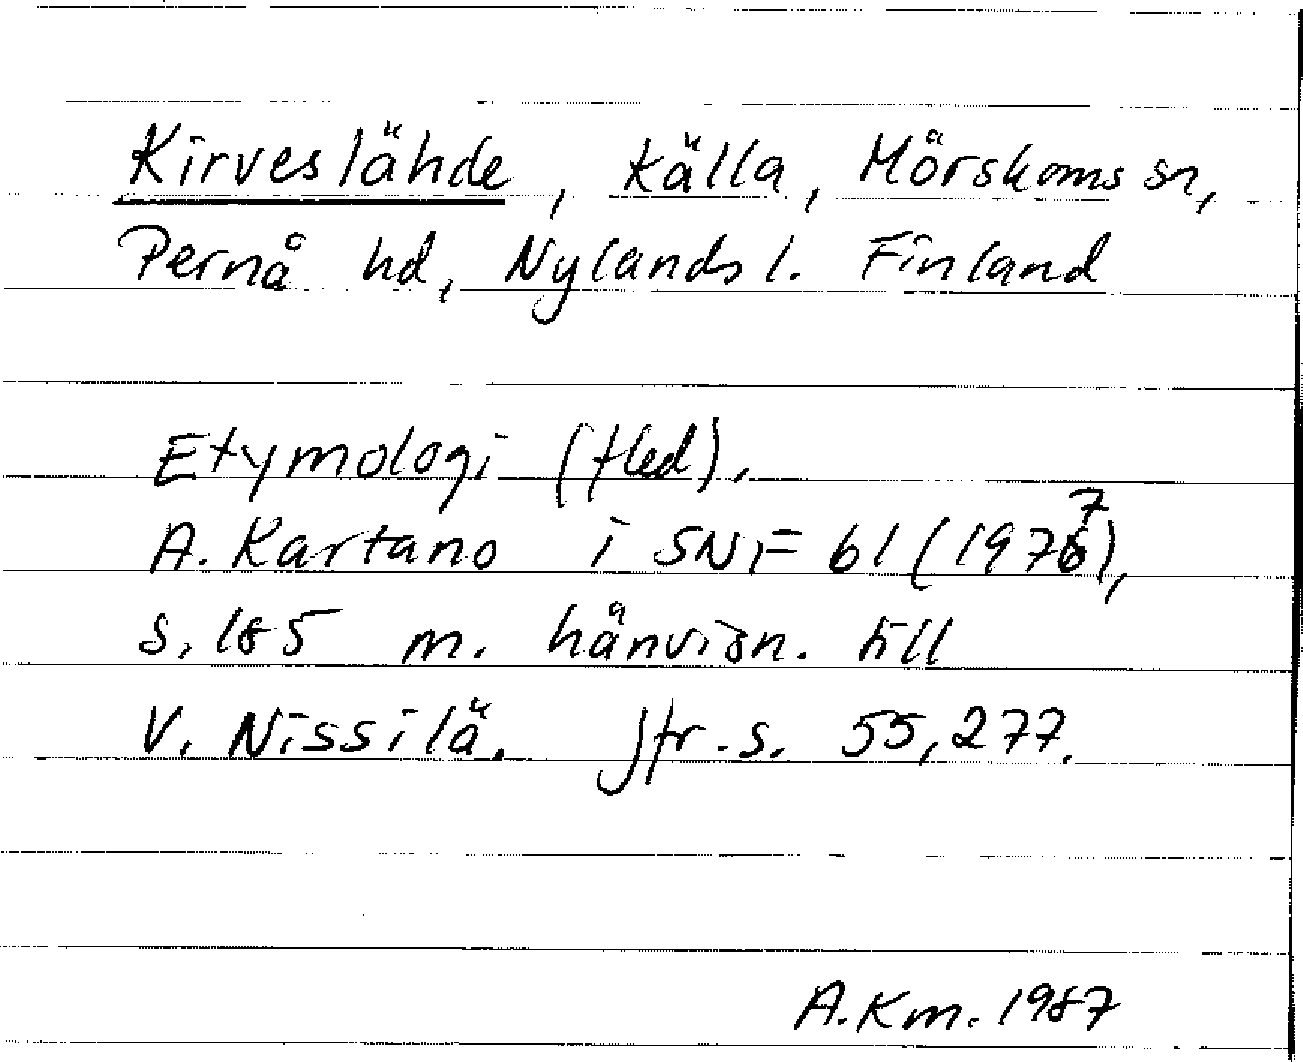 Kirveslähde, källa, Mörskoms sn,
Pernå hd, Nylands l. Finland
Etymologi (fled).
A. Kartano i SNF 61 (1977),
s. 185 m. hänvisn. till
V. Nissilä. Jfr s. 55, 277.
A.Km. 1987